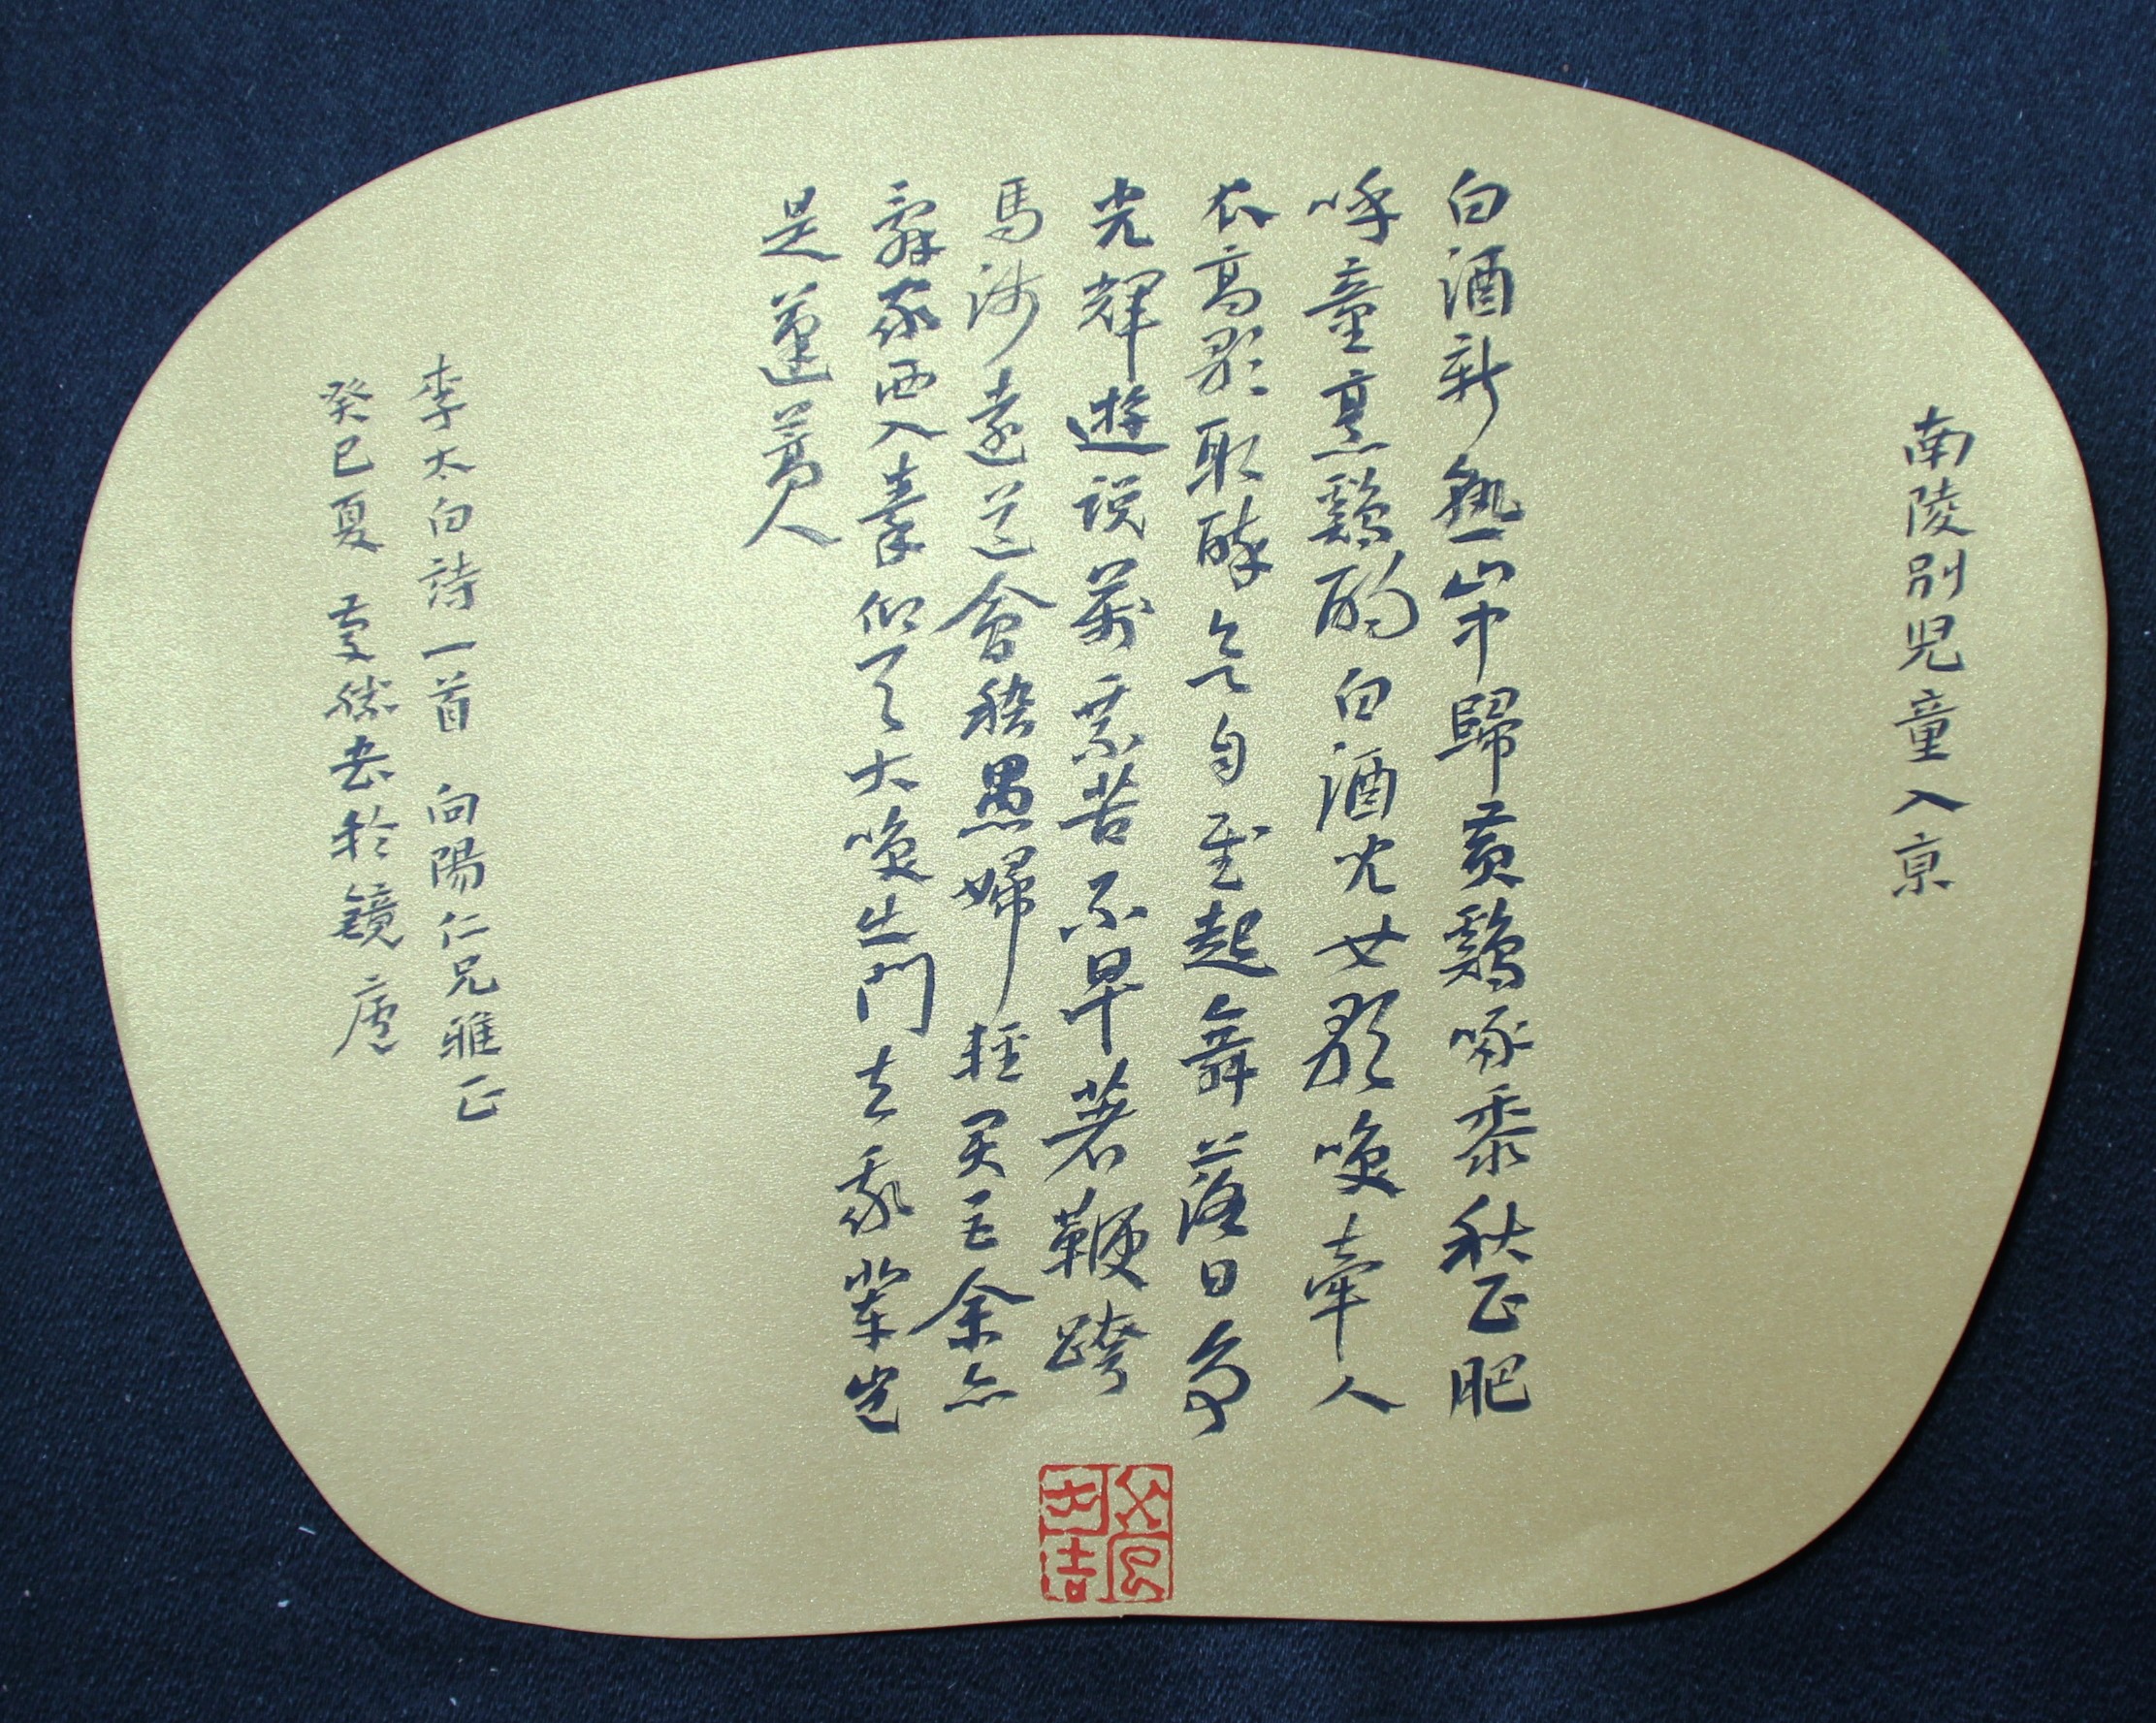 南陵別兒童入京
白酒新熟山中歸黃鷄啄黍秋正肥
呼童烹鷄酌白酒兒女歌喚牽人
衣高歌取醉欲自慰起舞落日爭
光輝遊說萬乘苦不早著鞭跨
馬涉遠道會稽愚婦輕買臣余亦
辭家西入秦仰天大喚出門去我輩豈
是蓬蒿人
李太白詩一首 向陽仁兄雅正
癸巳夏 書於鏡廬